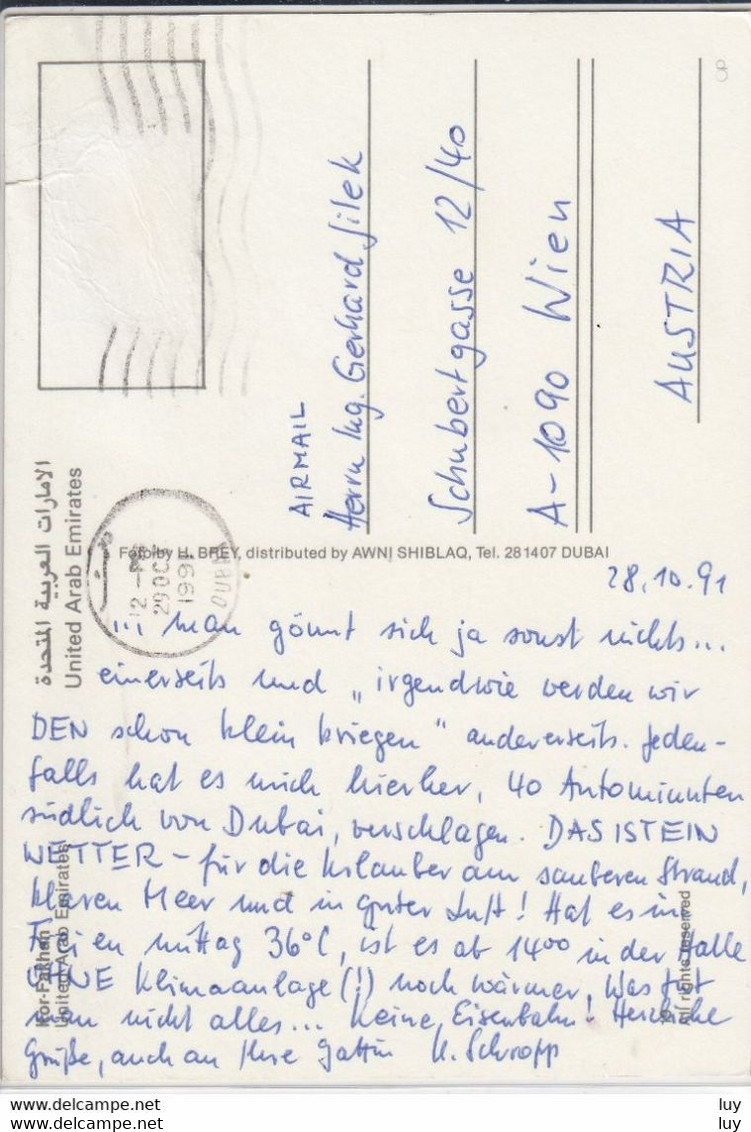 AIRMAIL
Herrn Ing. Gerhard Jilek
Schubertgasse 12/40
A-1090 Wien
AUSTRIA
الامارات العربية المتحدة
United Arab Emirates
29 OCT
1991
DUBAI
Foto by H. BREY, distributed by AWNI SHIBLAQ, Tel. 281407 DUBAI
28.10.91
... man gönnt sich ja sonst nichts...
einerseits und „irgendwie werden wir
DEN schon klein kriegen" andererseits. Jeden-
falls hat es mich hierher, 40 Autominuten
südlich von Dubai, verschlagen. DAS IST EIN
WETTER - für die Urlauber am sauberen Strand,
klaren Meer und in guter Luft! Hat es im
Freien mittag 36°C, ist es ab 14oo in der Halle
OHNE Klimaanlage (!) noch wärmer. Was tut
man nicht alles... keine Eisenbahn! Herzliche
Grüße, auch an Ihre Gattin H. Schropp
Kor-Fakhan
United Arab Emirates
All rights reserved
www.delcampe.net luy
www.delcampe.net luy